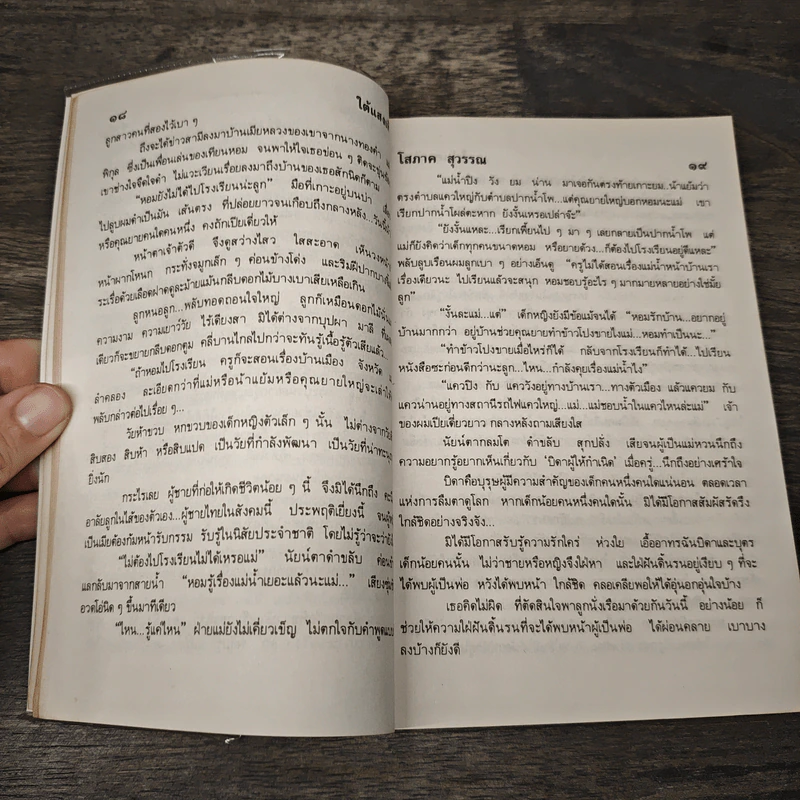 ๑๘
ใต้แสง
ลูกสาวคนที่สองไว้เบา ๆ
ถึงจะได้ข่าวสามีลงมาบ้านเมียหลวงของเขาจากนางทองคำ
พิกุล ซึ่งเป็นเพื่อนเล่นของเทียนหอม จนพาให้ใจเธอข่อน ๆ คิดจะ
เขาช่างใจจืดใจดำ ไม่แวะเวียนเรื่อยลงมาถึงบ้านของเธอสักนิดก็ตาม
“หอมยังไม่ได้ไปโรงเรียนน่ะลูก” มือที่เกาะอยู่บนบ่า
ไปลูบผมดำเป็นมัน เส้นตรง ที่ปล่อยยาวจนเกือบถึงกลางหลัง...วันนี้
หรือคุณยายคนใดคนหนึ่ง คงถักเปียเดี่ยวให้
หน้าตาเจ้าตัวดี จึงดูสว่างไสว ใสสะอาด เห็นวงหน้า
หน้าผากโหนก กระทั่งจมูกเล็ก ๆ ค่อนข้างโด่ง และริมฝีปากบาง
ระเรื่อด้วยเลือดฝาดดูละม้ายแม้นกลีบดอกไม้บางเบาเสียเหลือเกิน
ลูกหนอลูก...พลับทอดถอนใจใหญ่ ลูกก็เหมือนดอกไม้
ความงาม ความเยาว์วัย ไร้เดียงสา มิได้ต่างจากบุปผา มาลี
เดียวก็จะขยายกลีบออกตูม คลี่บานไกลไปกว่าจะทันรู้เนื้อรู้ตัวเสียแล้ว...
“ถ้าหอมไปโรงเรียน ครูก็จะสอนเรื่องบ้านเมือง จังหวัด
ลำคลอง ละเอียดกว่าที่แม่หรือน้าแย้มหรือคุณยายใหญ่จะเล่าให้
พลับกล่าวต่อไปเรื่อย ๆ...
วัยห้าขวบ หกขวบของเด็กหญิงตัวเล็ก ๆ นั้น ไม่ต่างจากวัย
สิบสอง สิบห้า หรือสิบแปด เป็นวัยที่กำลังพัฒนา เป็นวัยที่น่า
ยิ่งนัก
กระไรเลย ผู้ชายที่ก่อให้เกิดชีวิตน้อย ๆ นี้ จึงมิได้นึกถึง
อาลัยลูกในไส้ของตัวเอง...ผู้ชายไทยในสังคมนี้ ประพฤติเยี่ยงนี้ จน
เป็นเมียต้องก้มหน้ารับกรรม รับรู้ในนิสัยประจำชาติ โดยไม่รู้ว่าจะ
“ไม่ต้องไปโรงเรียนไม่ได้เหรอแม่” นัยน์ตาดำขลับ ค่อน
แลกลับมาจากสายน้ำ “หอมรู้เรื่องแม่น้ำเยอะแล้วนะแม่...” เสียง
อวดโอ่นิด ๆ ขึ้นมาทีเดียว
“ไหน...รู้แค่ไหน” ฝ่ายแม่ยังไม่เคี่ยวเข็ญ ไม่ตกใจกับคำพูด
โสภาค สุวรรณ
๑๙
“แม่น้ำปิง วัง ยม น่าน มาเจอกันตรงท้ายเกาะยม...น้าแย้มว่า
ตรงตำบลแควใหญ่กับตำบลปากน้ำโพ...แต่คุณยายใหญ่บอกหอมนะแม่ เขา
เรียกปากน้ำโผล่ตะหาก ยังงั้นเหรอเปล่าจ๊ะ”
“ยังงั้นแหละ...เรียกเพี้ยนไป ๆ มา ๆ เลยกลายเป็นปากน้ำโพ แต่
แม่ก็ยังคิดว่าเด็กทุกคนขนาดหอม หรือยายด้วง...ก็ต้องไปโรงเรียนอยู่ดีแหละ”
พลับลูบเรือนผมลูกเบา ๆ อย่างเอ็นดู “ครูไม่ได้สอนเรื่องแม่น้ำหน้าบ้านเรา
เรื่องเดียวนะ ไปเรียนแล้วจะสนุก หอมชอบรู้อะไร ๆ มากมายหลายอย่างใช่มั้ย
ลูก”
“งั้นละแม่...แต่” เด็กหญิงยังมีข้อแม้จนได้ “หอมรักบ้าน...อยากอยู่
บ้านมากกว่า อยู่บ้านช่วยคุณยายทำข้าวโปงขายไงแม่...หอมทำเป็นนะ...”
“ทำข้าวโปงขายเมื่อไหร่ก็ได้ กลับจากโรงเรียนก็ทำได้...ไปเรียน
หนังสือซะก่อนดีกว่านะลูก...ไหน...กำลังคุยเรื่องแม่น้ำไง”
“แควปิง กับ แคววังอยู่ทางบ้านเรา...ทางตัวเมือง แล้วแควยม กับ
แควน่านอยู่ทางสถานีรถไฟแควใหญ่...แม่...แม่ชอบน้ำในแควไหนล่ะแม่” เจ้า
ของผมเปียเดี่ยวยาว กลางหลังถามเสียงใส
นัยน์ตากลมโต ดำขลับ สุกปลั่ง เสียจนผู้เป็นแม่หวนนึกถึง
ความอยากรู้อยากเห็นเกี่ยวกับ ‘บิดาผู้ให้กำเนิด’ เมื่อครู่...นึกถึงอย่างเศร้าใจ
บิดาคือบุรุษผู้มีความสำคัญของเด็กคนหนึ่งคนใดแน่นอน ตลอดเวลา
แห่งการลืมตาดูโลก หากเด็กน้อยคนหนึ่งคนใดนั้น มิได้มีโอกาสสัมผัสรัดรึง
ใกล้ชิดอย่างจริงจัง...
มิได้มีโอกาสรับรู้ความรักใคร่ ห่วงใย เอื้ออาทรฉันบิดาและบุตร
เด็กน้อยคนนั้น ไม่ว่าชายหรือหญิงจึงใฝ่หา และใฝ่ฝันดิ้นรนอยู่เงียบ ๆ ที่จะ
ได้พบผู้เป็นพ่อ หวังได้พบหน้า ใกล้ชิด คลอเคลียพอให้ได้อุ่นอกอุ่นใจบ้าง
เธอคิดไม่ผิด ที่ตัดสินใจพาลูกนั่งเรือมาด้วยกันวันนี้ อย่างน้อย ก็
ช่วยให้ความใฝ่ฝันดิ้นรนที่จะได้พบหน้าผู้เป็นพ่อ ได้ผ่อนคลาย เบาบาง
ลงบ้างก็ยังดี